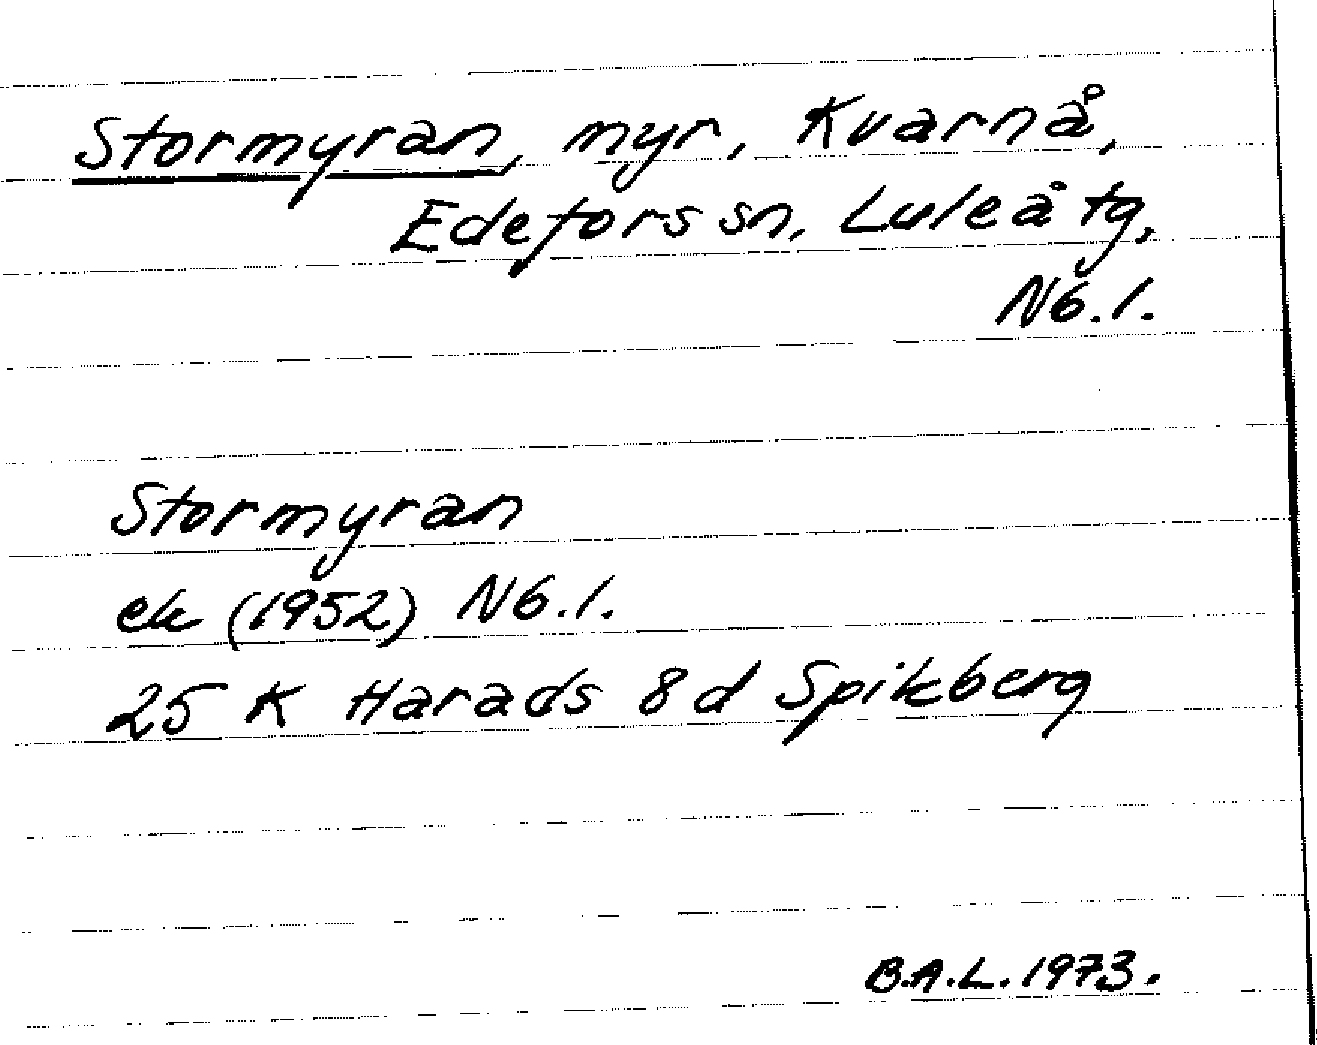 Stormyran, myr, Kvarnå,
Edefors sn, Luleå tg,
Nb.l.
Stormyran
ek (1952) Nb.l.
25 K Harads 8 d Spikberg
B.A.L. 1973.